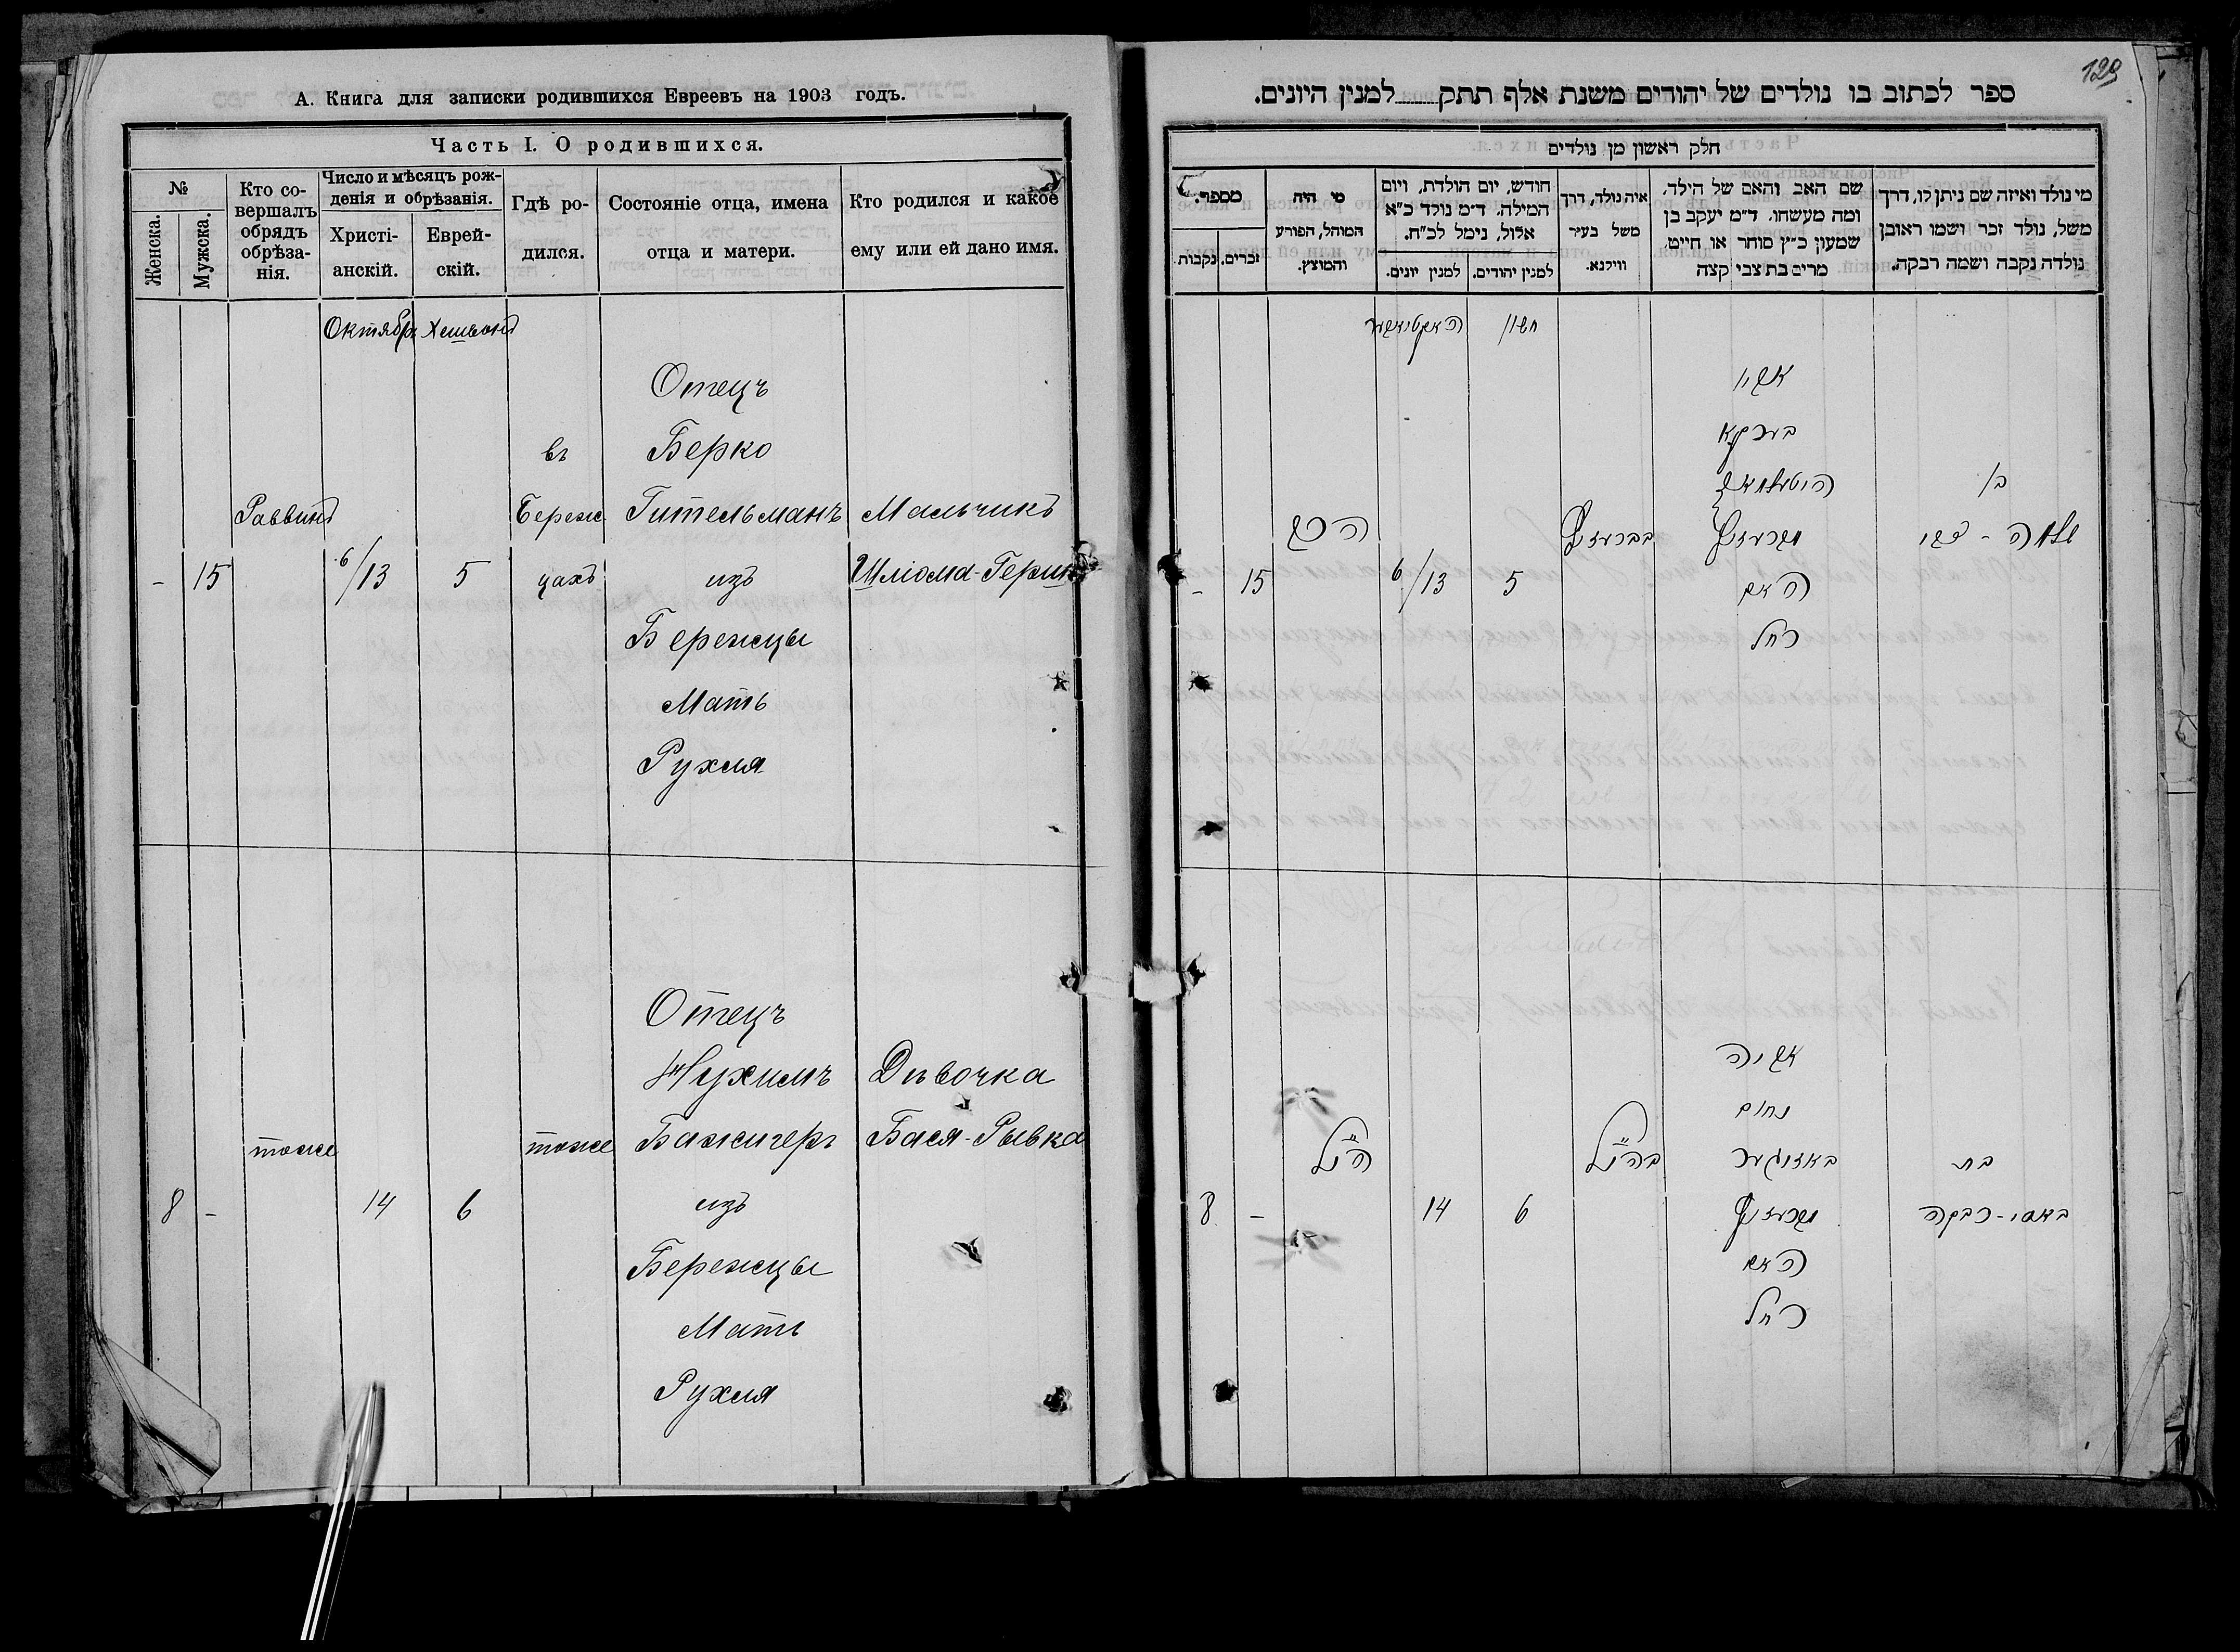 А. Книга для записки родившихся Евреевъ на 1903 годъ.
Часть I. О родившихся.
№
Женска.
Мужска.
Кто со-
вершалъ
обрядъ
обрѣза-
нія.
Число и мѣсяцъ рож-
денія и обрѣзанія.
Христі-
анскій.
Еврей-
скій.
Гдѣ ро-
дился.
Состояніе отца, имена
отца и матери.
Кто родился и какое
ему или ей дано имя.
Октябрь
Отецъ
въ Берко
Раввинъ Береж Гительманъ Мальчикъ
- 15 6/13 5 цахъ изъ Шліома-Герш
Бережцы
Мать
Рухля
Отецъ
Нухимъ Дѣвочка
тоже тоже Бажигеръ Бася-Рывка
8 - 14 6 изъ
Бережцы
Мать
Рухля
129
ספר לכתוב בו נולדים של יהודים משנת אלף תתק למנין היונים.
חלק ראשון מן נולדים
מי נולד ואיזה שם ניתן לו, דרך
משל, נולד זכר ושמו ראובן
נולדה נקבה ושמה רבקה.
שם האב והאם של הילד,
ומה מעשהו. ד״מ יעקב בן
שמעון כ״ץ סוחר או חייט,
מרים בת צבי קצה
איה נולד, דרך
משל בעיר
ווילנא.
חודש, יום הולדת, ויום
המילה. ד״מ נולד כ״א
אלול, נימל לכ״ח.
למנין יהודים.
למנין יונים.
מי היה
המוהל, הפורע
והמוצץ.
מספר.
זכרים.
נקבות.
חשון
אביו
בערקא
בן
הרב
- 15 6/13 5 האם
רחל
אביה
נחום
בת באזיגער בה״נל ה״נל
באסי-רבקה 6 14 - 8
האם
רחל